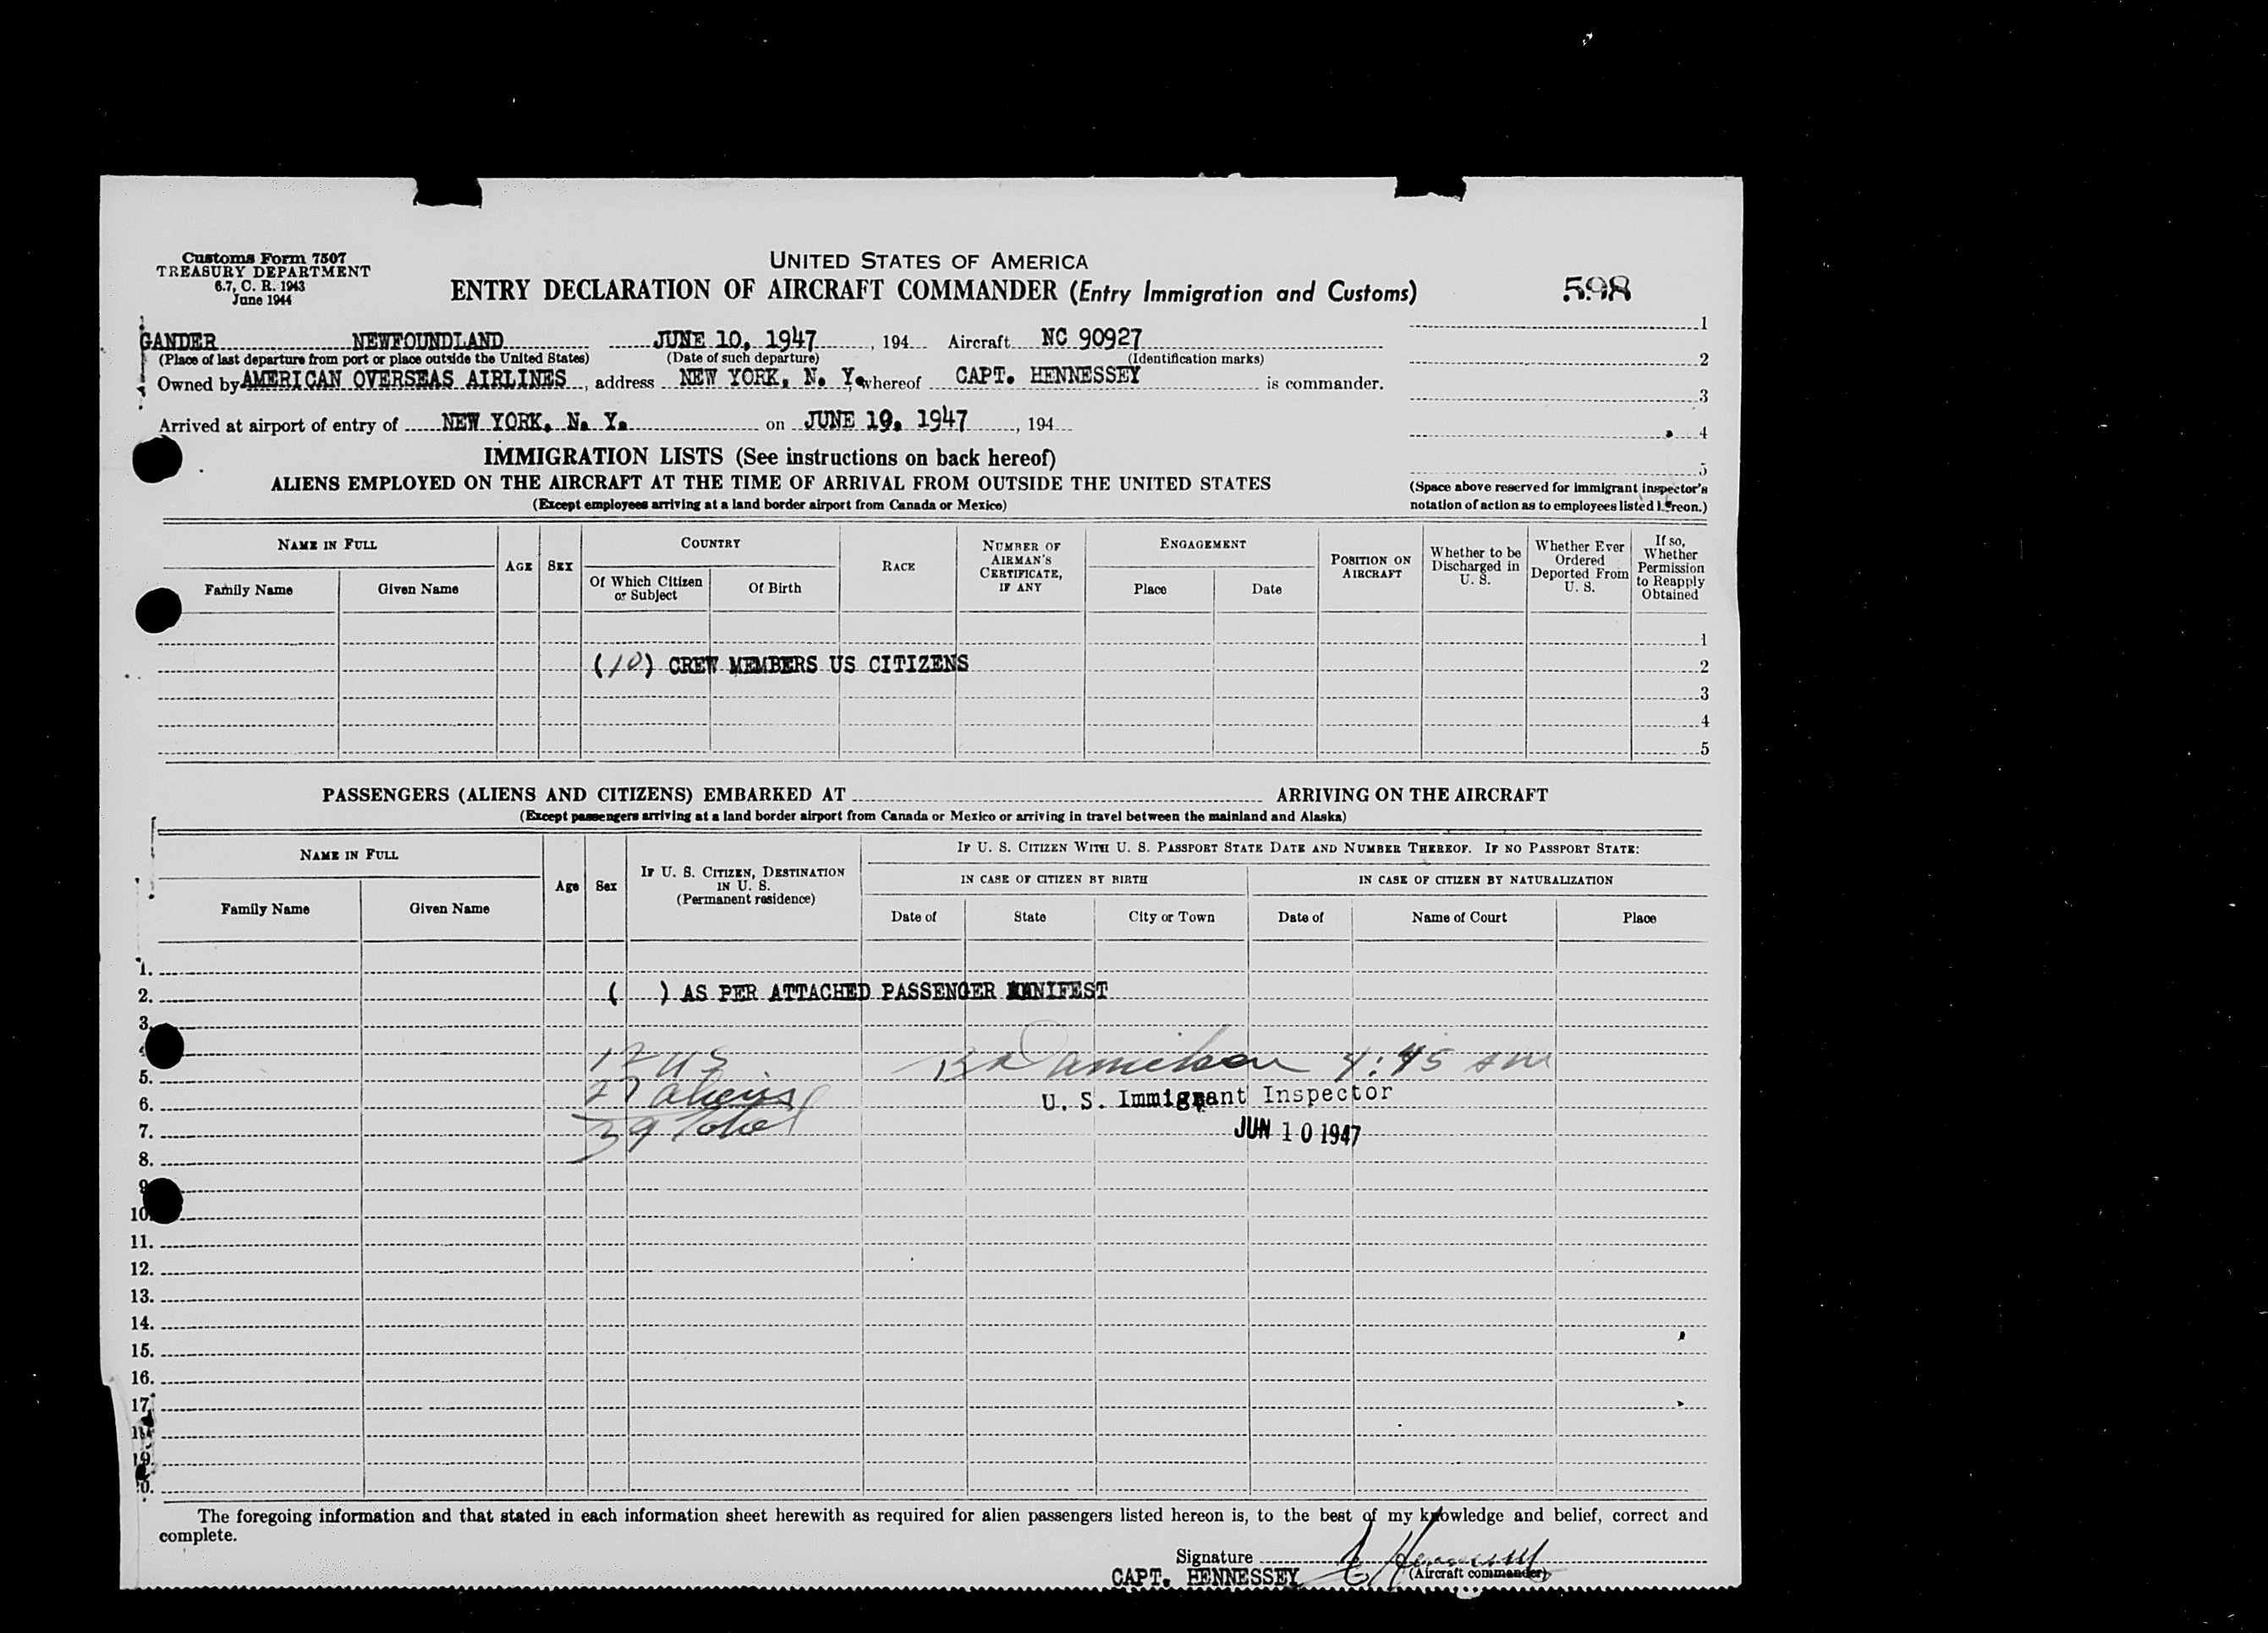 Customs Form 7507
TREASURY DEPARTMENT
6.7, C. R. 1943
June 1944
UNITED STATES OF AMERICA
ENTRY DECLARATION OF AIRCRAFT COMMANDER (Entry Immigration and Customs)
598
GANDER NEWFOUNDLAND JUNE 10, 1947, 194 Aircraft NC 90927
(Place of last departure from port or place outside the United States) (Date of such departure) (Identification marks)
Owned by AMERICAN OVERSEAS AIRLINES, address NEW YORK, N. Y. whereof CAPT. HENNESSEY is commander.
Arrived at airport of entry of NEW YORK, N. Y. on JUNE 10, 1947, 194
1
2
3
4
5
IMMIGRATION LISTS (See instructions on back hereof)
ALIENS EMPLOYED ON THE AIRCRAFT AT THE TIME OF ARRIVAL FROM OUTSIDE THE UNITED STATES
(Except employees arriving at a land border airport from Canada or Mexico)
(Space above reserved for immigrant inspector's
notation of action as to employees listed hereon.)
NAME IN FULL
Family Name
Given Name
AGE
SEX
COUNTRY
Of Which Citizen
or Subject
Of Birth
RACE
NUMBER OF
AIRMAN'S
CERTIFICATE,
IF ANY
ENGAGEMENT
Place
Date
POSITION ON
AIRCRAFT
Whether to be
Discharged in
U. S.
Whether Ever
Ordered
Deported From
U. S.
If so,
Whether
Permission
to Reapply
Obtained
1
(10) CREW MEMBERS US CITIZENS 2
3
4
5
PASSENGERS (ALIENS AND CITIZENS) EMBARKED AT ARRIVING ON THE AIRCRAFT
(Except passengers arriving at a land border airport from Canada or Mexico or arriving in travel between the mainland and Alaska)
NAME IN FULL
Family Name
Given Name
Age
Sex
IF U. S. CITIZEN, DESTINATION
IN U. S.
(Permanent residence)
IF U. S. CITIZEN WITH U. S. PASSPORT STATE DATE AND NUMBER THEREOF. IF NO PASSPORT STATE:
IN CASE OF CITIZEN BY BIRTH
IN CASE OF CITIZEN BY NATURALIZATION
Date of
State
City or Town
Date of
Name of Court
Place
1.
2. ( ) AS PER ATTACHED PASSENGER MANIFEST
3.
12 US 4:45 am
5.
27 aliens
6. U. S. Immigrant Inspector
7. 39 Total JUN 10 1947
8.
9
10.
11.
12.
13.
14.
15.
16.
17.
18.
19.
0.
The foregoing information and that stated in each information sheet herewith as required for alien passengers listed hereon is, to the best of my knowledge and belief, correct and
complete.
Signature
CAPT. HENNESSEY (Aircraft commander)